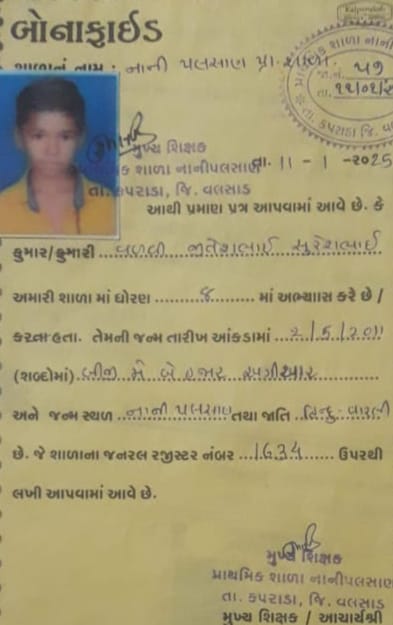 બોનાફાઈડ
શાળાનું નામ : નાની પલસાણ પ્રા. શાળા
પ્રાથમિક શાળા નાની
જા.નં. ૫૭
તા.
તા. કપરાડા, જિ. વ
મુખ્ય શિક્ષક
પ્રાથમિક શાળા નાનીપલસાણ
તા. 11 - 1 - 2025
તા. કપરાડા, જિ. વલસાડ
આથી પ્રમાણ પત્ર આપવામાં આવે છે. કે
કુમાર/કુમારી વળવી જીતેશભાઈ સુરેશભાઈ
અમારી શાળા માં ધોરણ ૪ માં અભ્યાસ કરે છે /
કરતા હતા. તેમની જન્મ તારીખ આંકડામાં 2/5/2011
(શબ્દોમાં) બીજી મે બે હજાર અગીયાર
અને જન્મ સ્થળ નાની પલસાણ તથા જાતિ હિન્દુ-વારલી
છે. જે શાળાના જનરલ રજીસ્ટર નંબર 1634 ઉપરથી
લખી આપવામાં આવે છે.
મુખ્ય શિક્ષક
પ્રાથમિક શાળા નાનીપલસાણ
તા. કપરાડા, જિ. વલસાડ
મુખ્ય શિક્ષક / આચાર્યશ્રી